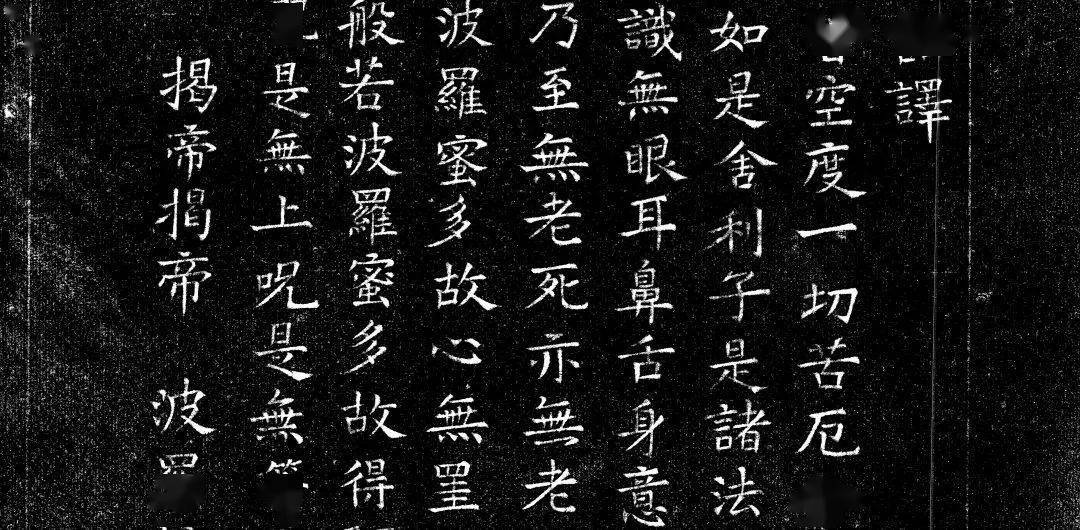 譯
空度一切苦厄
如是舍利子是諸法
識無眼耳鼻舌身意
乃至無老死亦無老
波羅蜜多故心無罣
般若波羅蜜多故得
是無上呪是無
揭帝揭帝 波